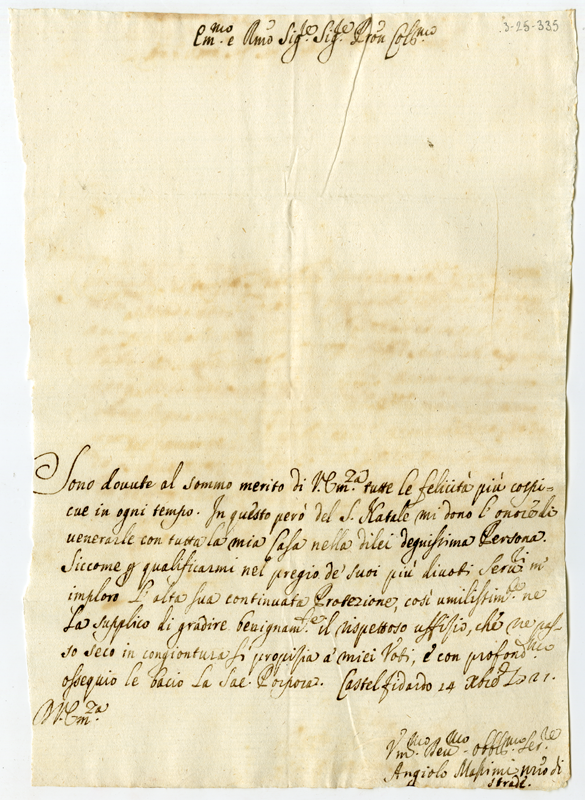 3-25-335
Em.mo e Rmo Sig.re Sig.re Pron Col.mo
Sono douute al sommo merito di V. Em.za tutte le felicità più cospi-
cue in ogni tempo. In questo però del S. Natale mi dono l'onore di
uenerarle con tutta la mia Casa nella di lei degnissima Persona.
Siccome p qualificarmi nel pregio de suoi più diuoti Serui m
imploro l'alta sua continuata Protezione, così umilissim.te ne
La supplico di gradire benignam.te il rispettoso uffisio, che ne pas-
so seco in congiontura sì propisia à miei Voti, e con profond.mo
ossequio le bacio La Sac. Porpora. Castelfidardo 24 Xbre
D V. Em.za
Vm.mo Deu.mo Obblig.mo Ser.re
Angiolo Massimi